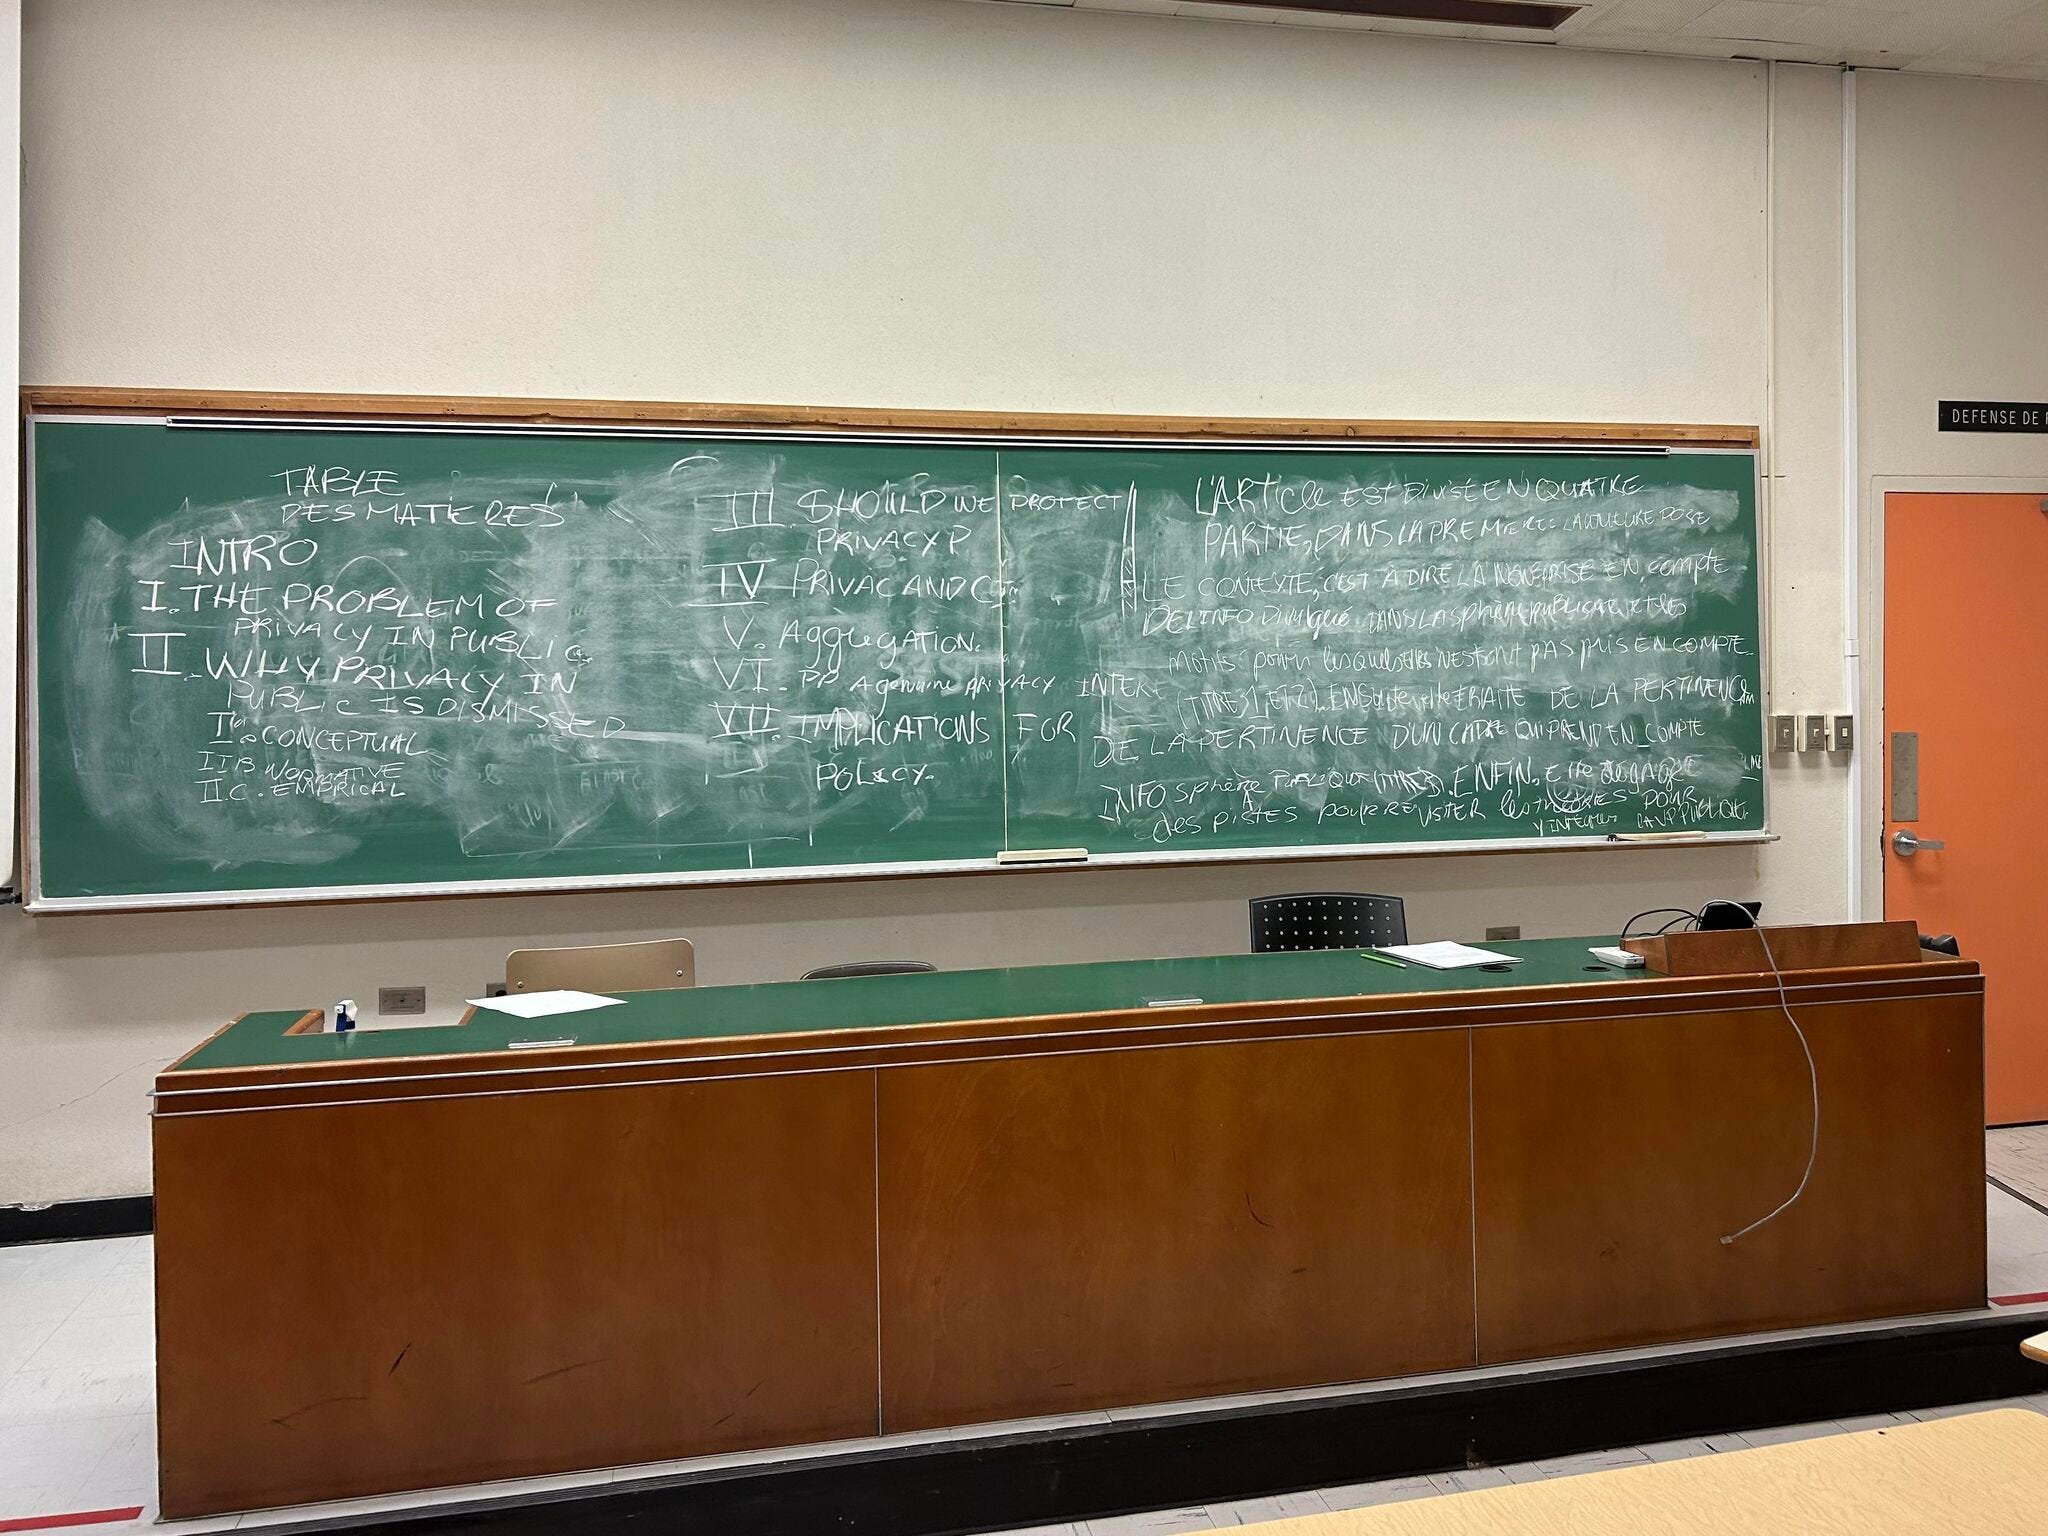 TABLE
DES MATIERES
INTRO
I. THE PROBLEM OF
PRIVACY IN PUBLIC
II. WHY PRIVACY IN
PUBLIC IS DISMISSED
CONCEPTUAL
IIB NORMATIVE
II.C. EMPIRICAL
III. SHOULD WE PROTECT
PRIVACY P
IV PRIVAC AND
V. Aggregation.
VI. PP A genuine privacy INTERE
VII. IMPLICATIONS FOR
POLICY.
L'ARTICLE EST DIVISÉ EN QUATRE
PARTIE, DANS LA PREMIERE POSE
LE CONTEXTE, C'EST À DIRE LA NON PRISE EN COMPTE
DE L'INFO Divulgué DANS LA SPhère publique et les
motifs pour lesquels elles pas pris EN COMPTE
(TITRES 1, ET 2). ENSUITE elle TRAITE DE LA PERTINENCE
DE LA PERTINENCE D'UN CADRE QUI PREND EN COMPTE
INFO sphère PUBLIQUE (TITRE 3). ENFIN, Elle dégage
des pistes pour REVISITER les théories POUR
Y INTÉGRER LA VP PUBLIQUE.
DEFENSE DE